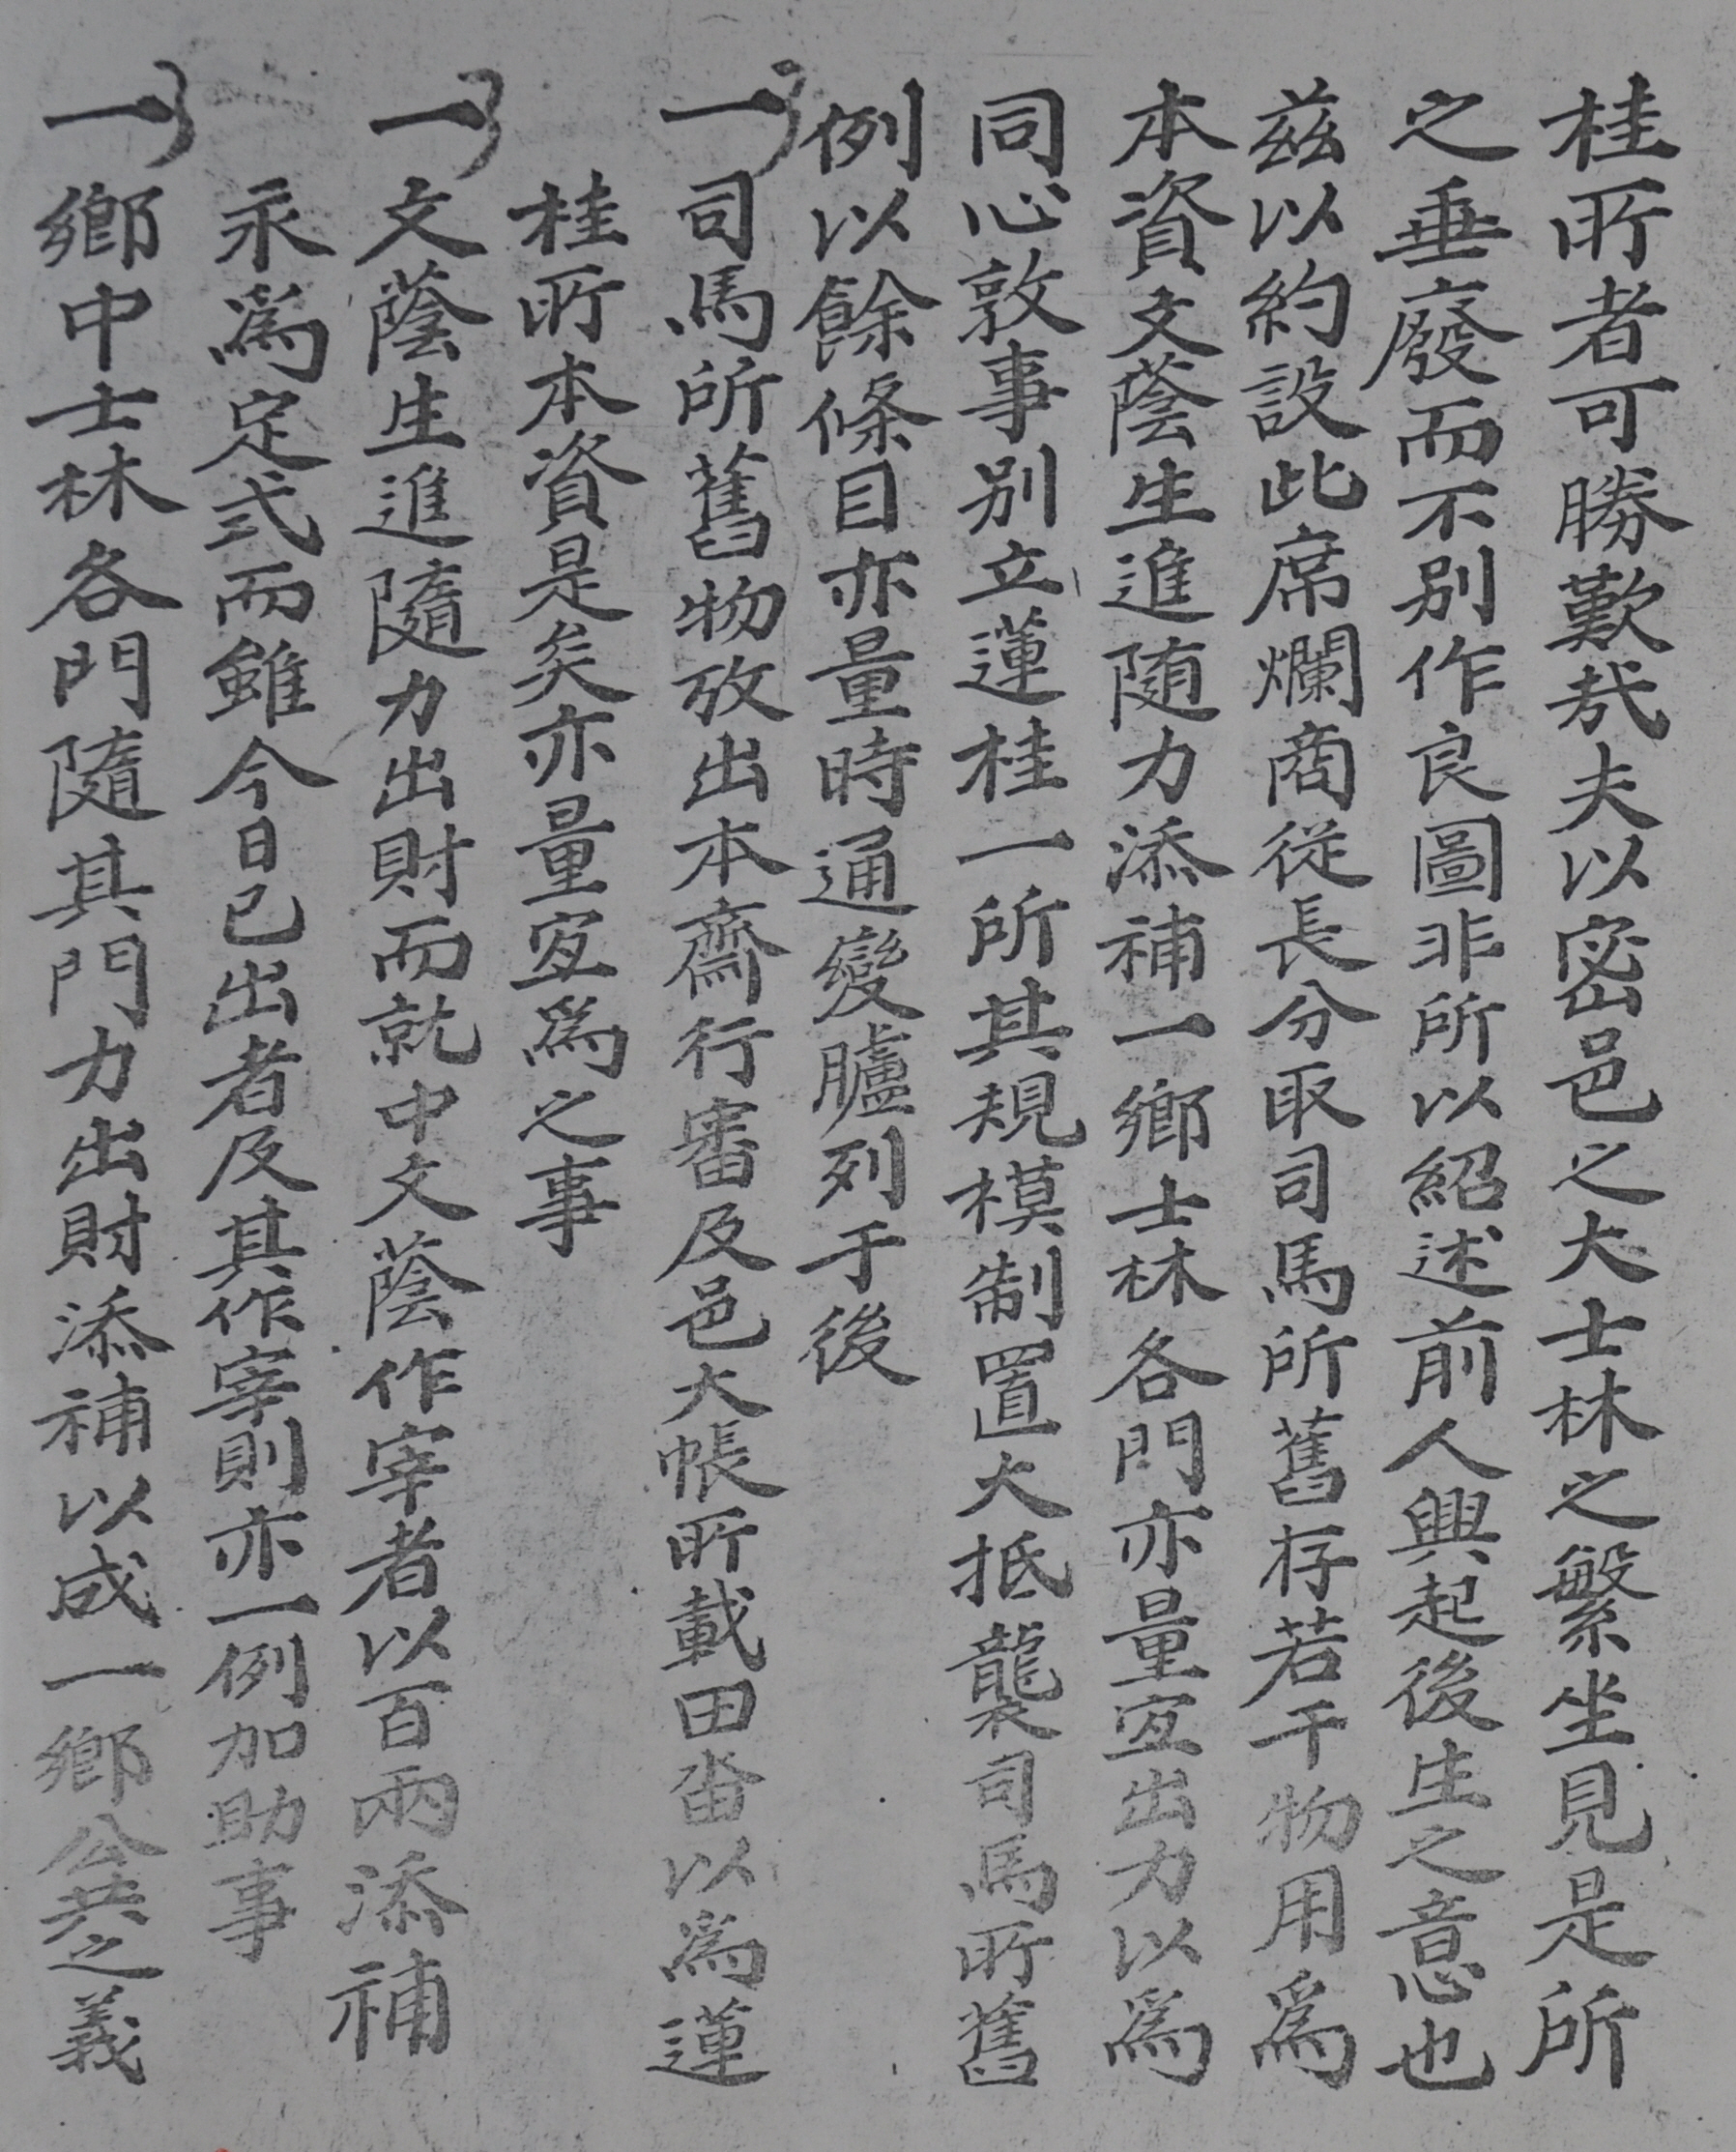 桂所者可勝歎哉夫以密邑之大士林之繁坐見是所
之垂廢而不别作良圖非所以紹述前人興起後生之意也
玆以約設此席爛商從長分取司馬所舊存若干物用爲
本資文蔭生進隨力添補一鄕士林各門亦量宜出力以爲
同心敦事别立蓮桂一所其規模制置大抵襲司馬所舊
例以餘條目亦量時通變臚列于後
一司馬所舊物攷出本齋行審及邑大帳所載田畓以爲蓮
桂所本資是矣亦量宜爲之事
一文蔭生進隨力出財而就中文蔭作宰者以百兩添補
永爲定式而雖今日已出者及其作宰則亦一例加助事
一鄕中士林各門隨其門力出財添補以成一鄕公共之義